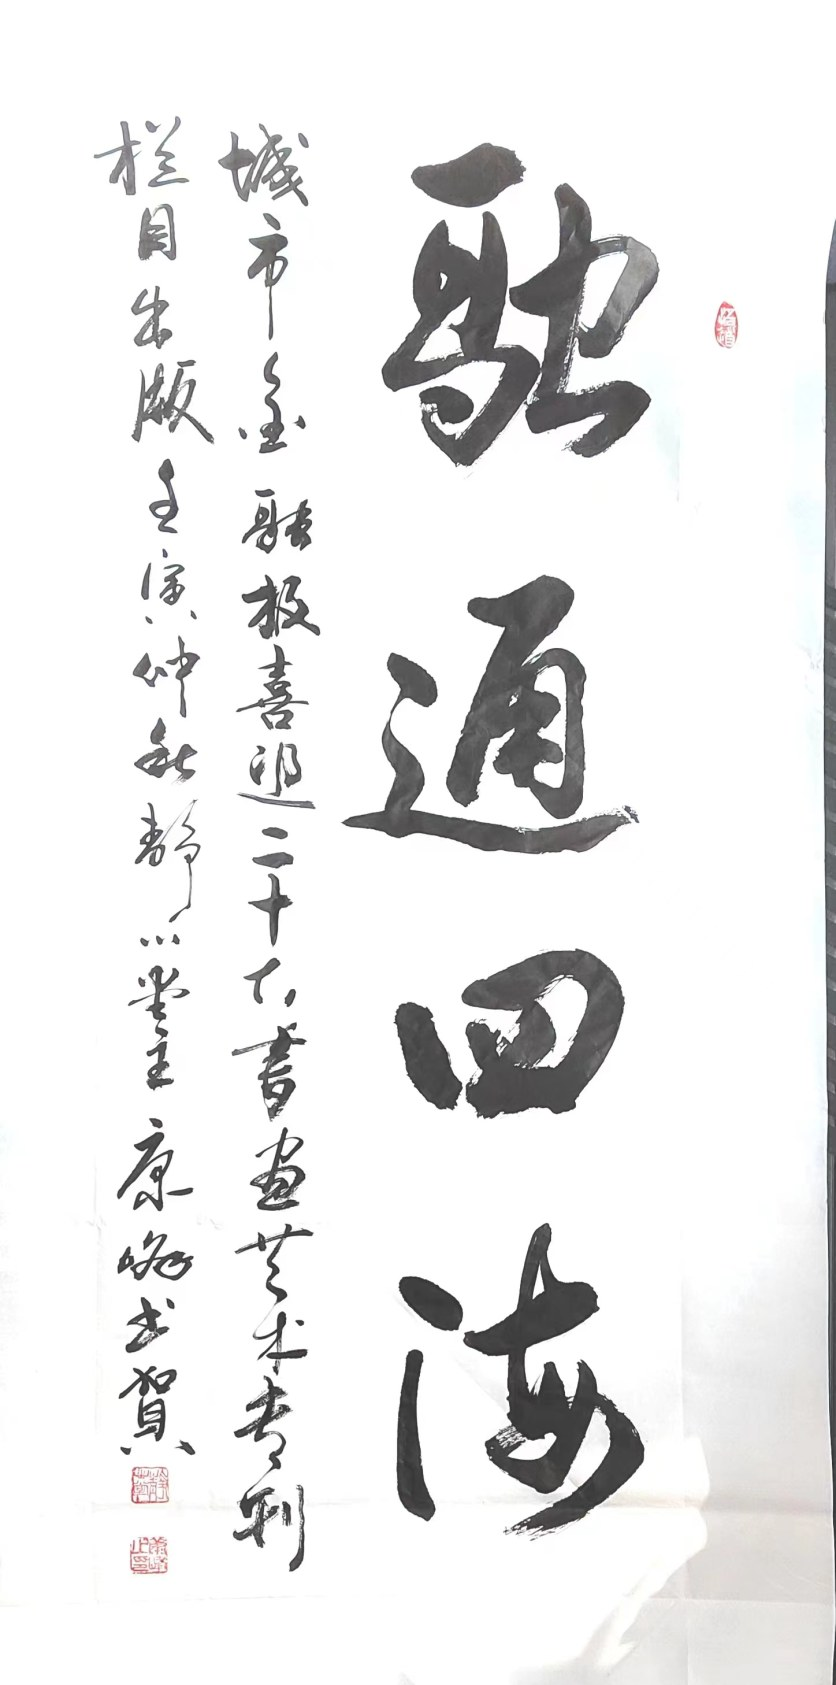 融通四海
城市金融报喜迎二十大书画艺术专刊
栏目出版壬寅仲秋静心堂主康峰书贺